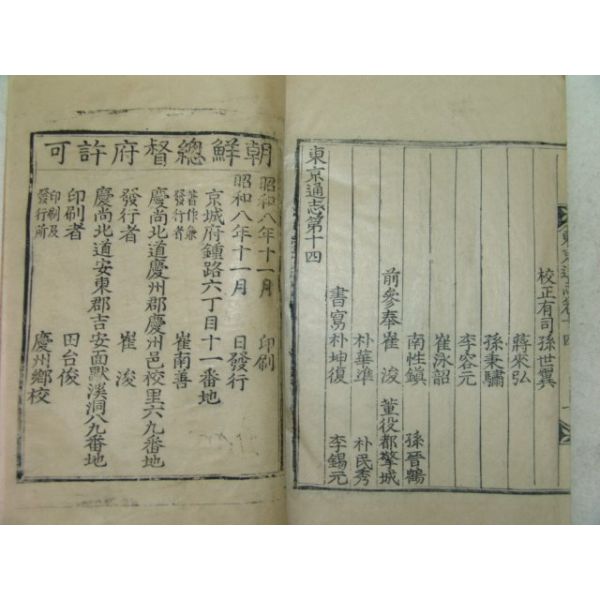 東京通志卷十四
校正有司孫世翼
蔣來弘
孫秉驌
李容元
崔泳詔
南性鎭 孫晉鶴
前參奉崔浚 董役都擎城
朴華準 朴民秀
書寫朴坤復 李錫元
東京通志第十四
朝鮮總督府許可
昭和八年十一月 印刷
昭和八年十一月 日發行
京城府鍾路六丁目十一番地
著作兼發行者 崔南善
慶尚北道慶州郡慶州邑校里六九番地
發行者 崔浚
慶尚北道安東郡吉安面默溪洞八九番地
印刷者 田台俊
印刷及發行所 慶州鄉校